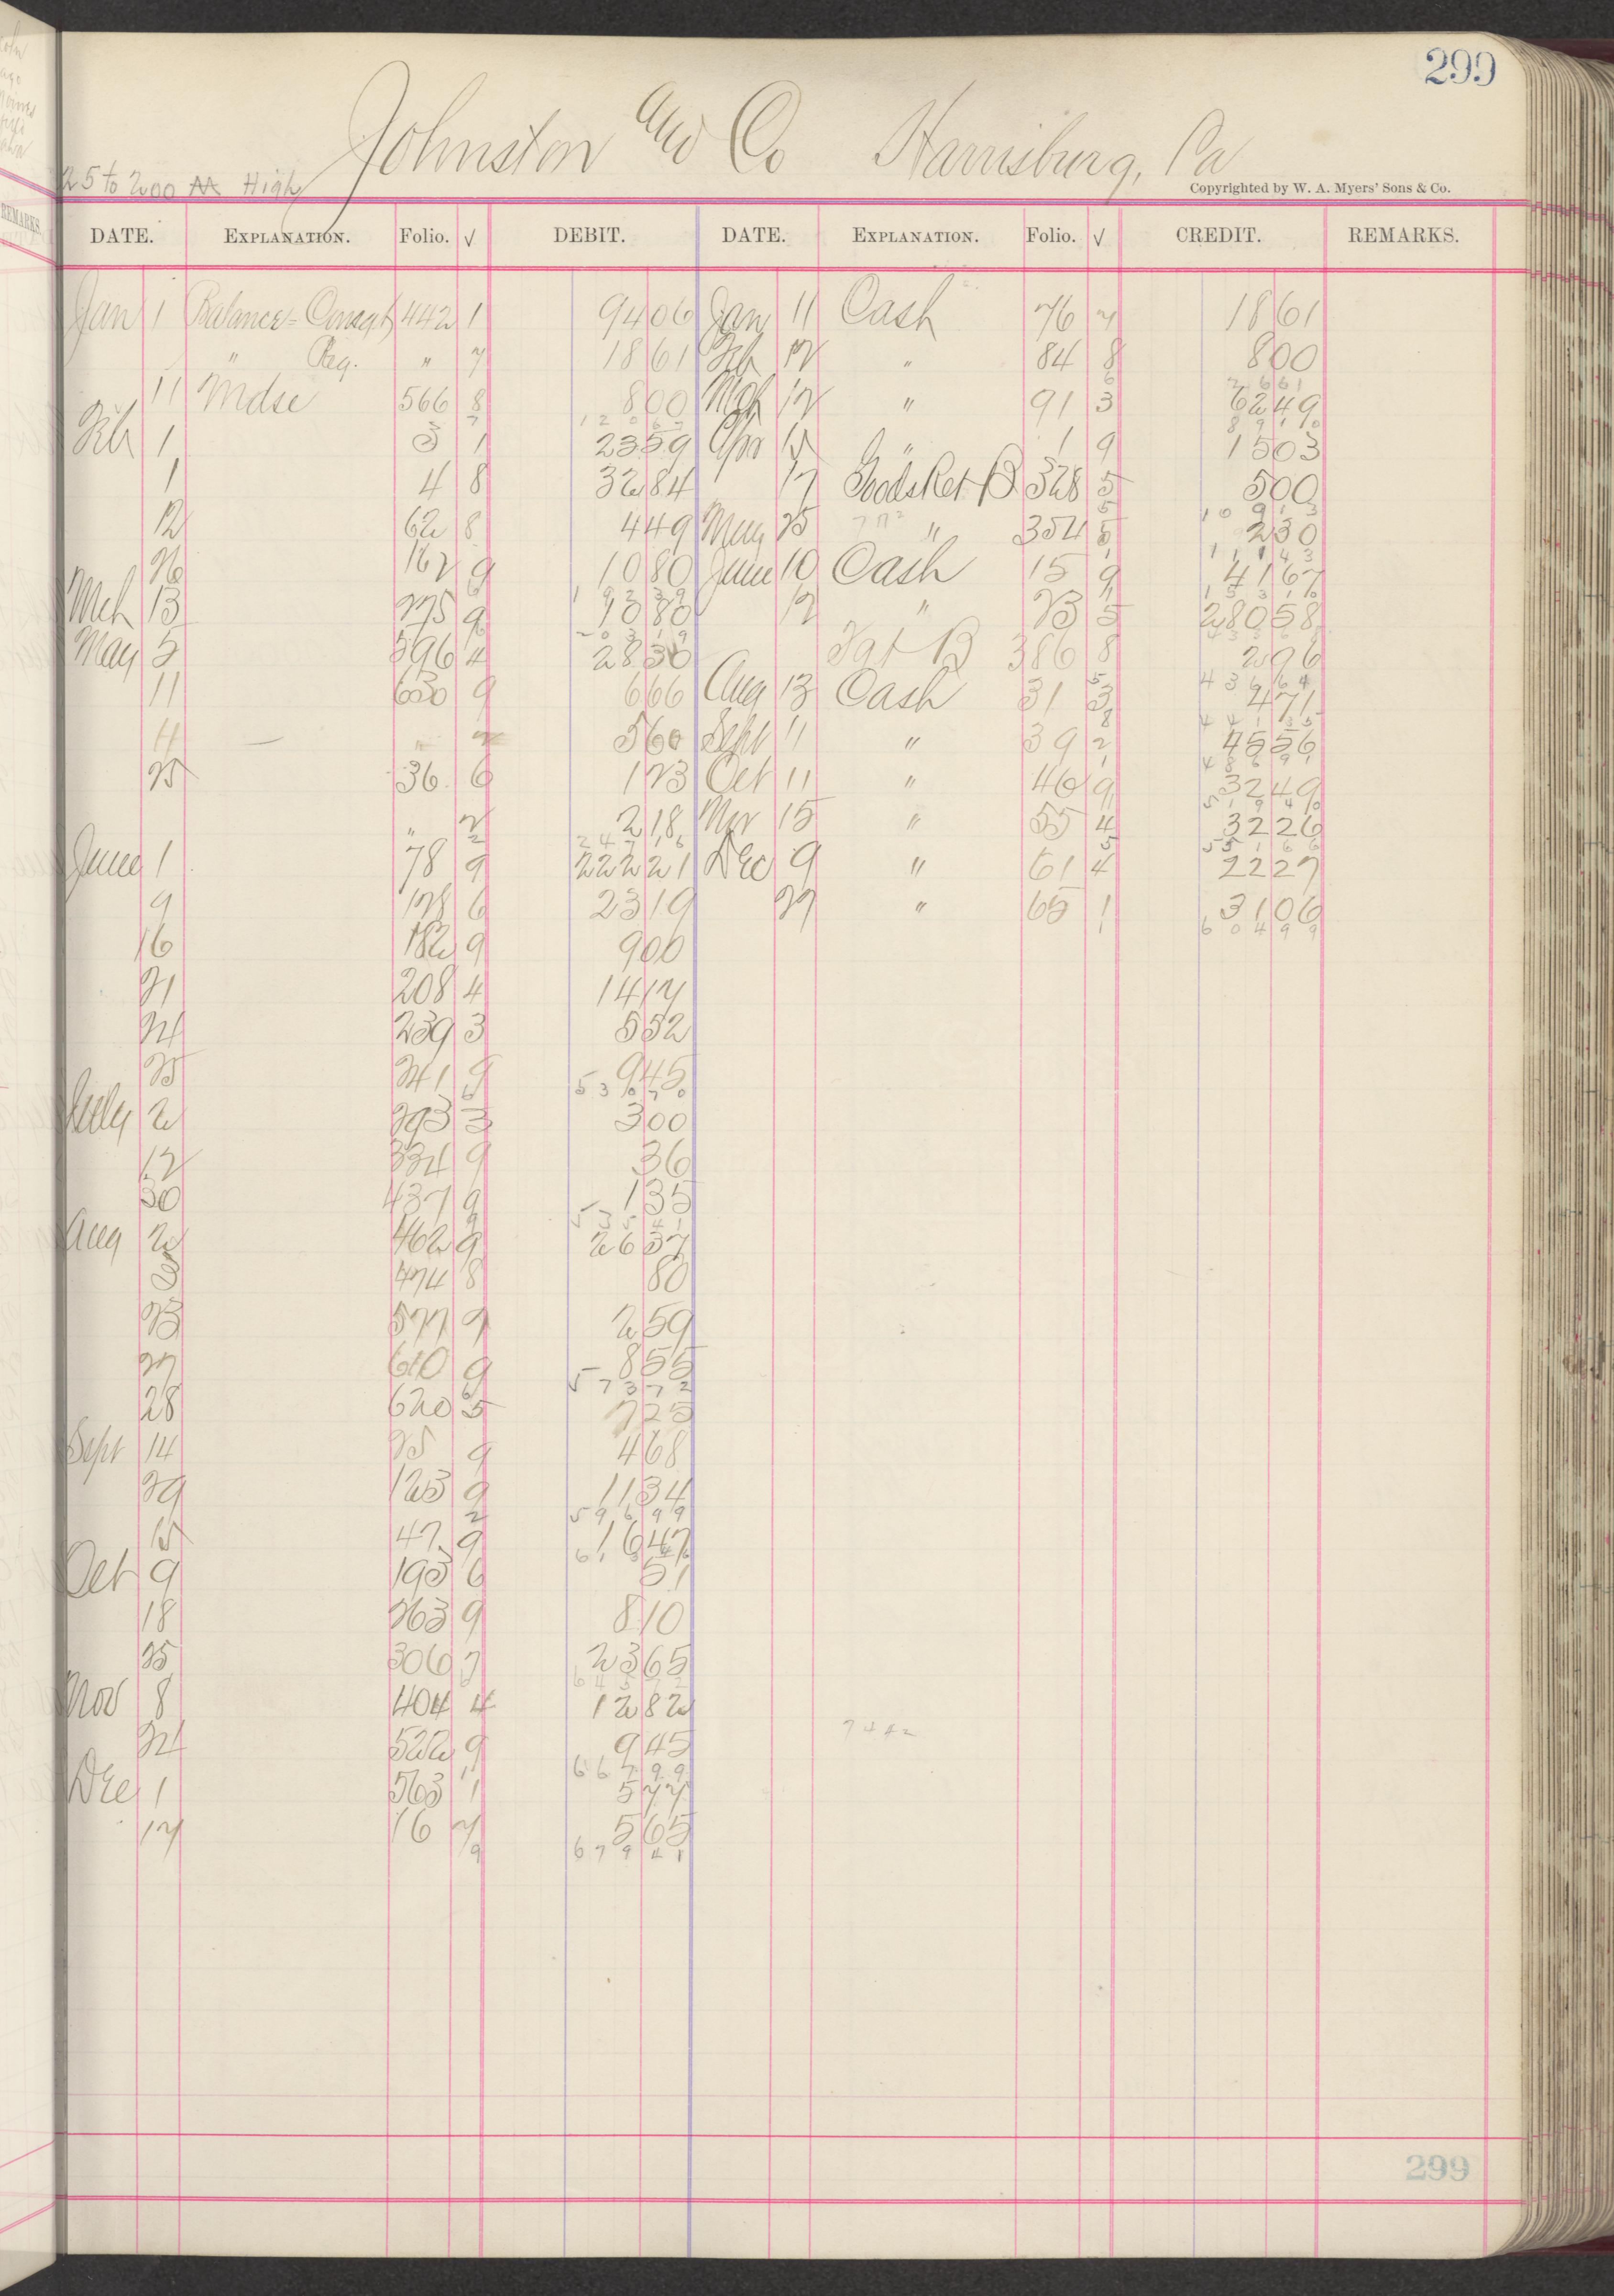 299
Johnston and Co Harrisburg, Pa
25 to 200 M High
Copyrighted by W. A. Myers' Sons & Co.
DATE. EXPLANATION. Folio. √ DEBIT. DATE. EXPLANATION. Folio. √ CREDIT. REMARKS.
Jan 1 Balance - Consgt 442 1 9406 Jan 11 Cash 76 7 1861
" Reg. " 7 1861 Feb 12 " 84 8 800
2661
11 Mdse 566 8 800 Mch 12 " 91 3 6249
12067 8910
Feb 1 3 1 2359 Apr 15 " 1 9 1503
1 4 8 3284 17 Goods Ret B 328 5 500
10913
12 62 8 449 May 25 " 354 5 230
11143
26 167 9 1080 June 10 Cash 15 9 4167
19239 15310
Mch 13 275 9 1080 12 " 23 5 28058
20319
May 5 596 4 2830 B 386 8 296
43664
11 630 9 666 Aug 13 Cash 31 3 471
44135
11 " 560 Sept 11 " 39 2 4556
48691
25 36 6 173 Oct 11 " 46 9 3249
51940
" 2 218 Nov 15 " 55 4 3226
24766 55166
June 1 78 9 22221 Dec 9 " 61 4 2227
9 178 6 2319 27 " 65 1 3106
60499
16 182 9 900
21 208 4 1417
24 239 3 552
25 241 9 945
July 2 293 3 300
12 334 9 36
30 437 9 135
53541
Aug 2 462 9 2637
3 474 8 80
23 577 9 259
27 610 9 855
57372
28 620 5 725
Sept 14 25 9 468
29 123 9 1134
59699
15 47 9 1647
Oct 9 193 6 51
18 263 9 810
25 306 7 2365
Nov 8 404 4 1282
7442
24 522 9 945
66799
Dec 1 563 1 577
17 16 7 565
67941
299